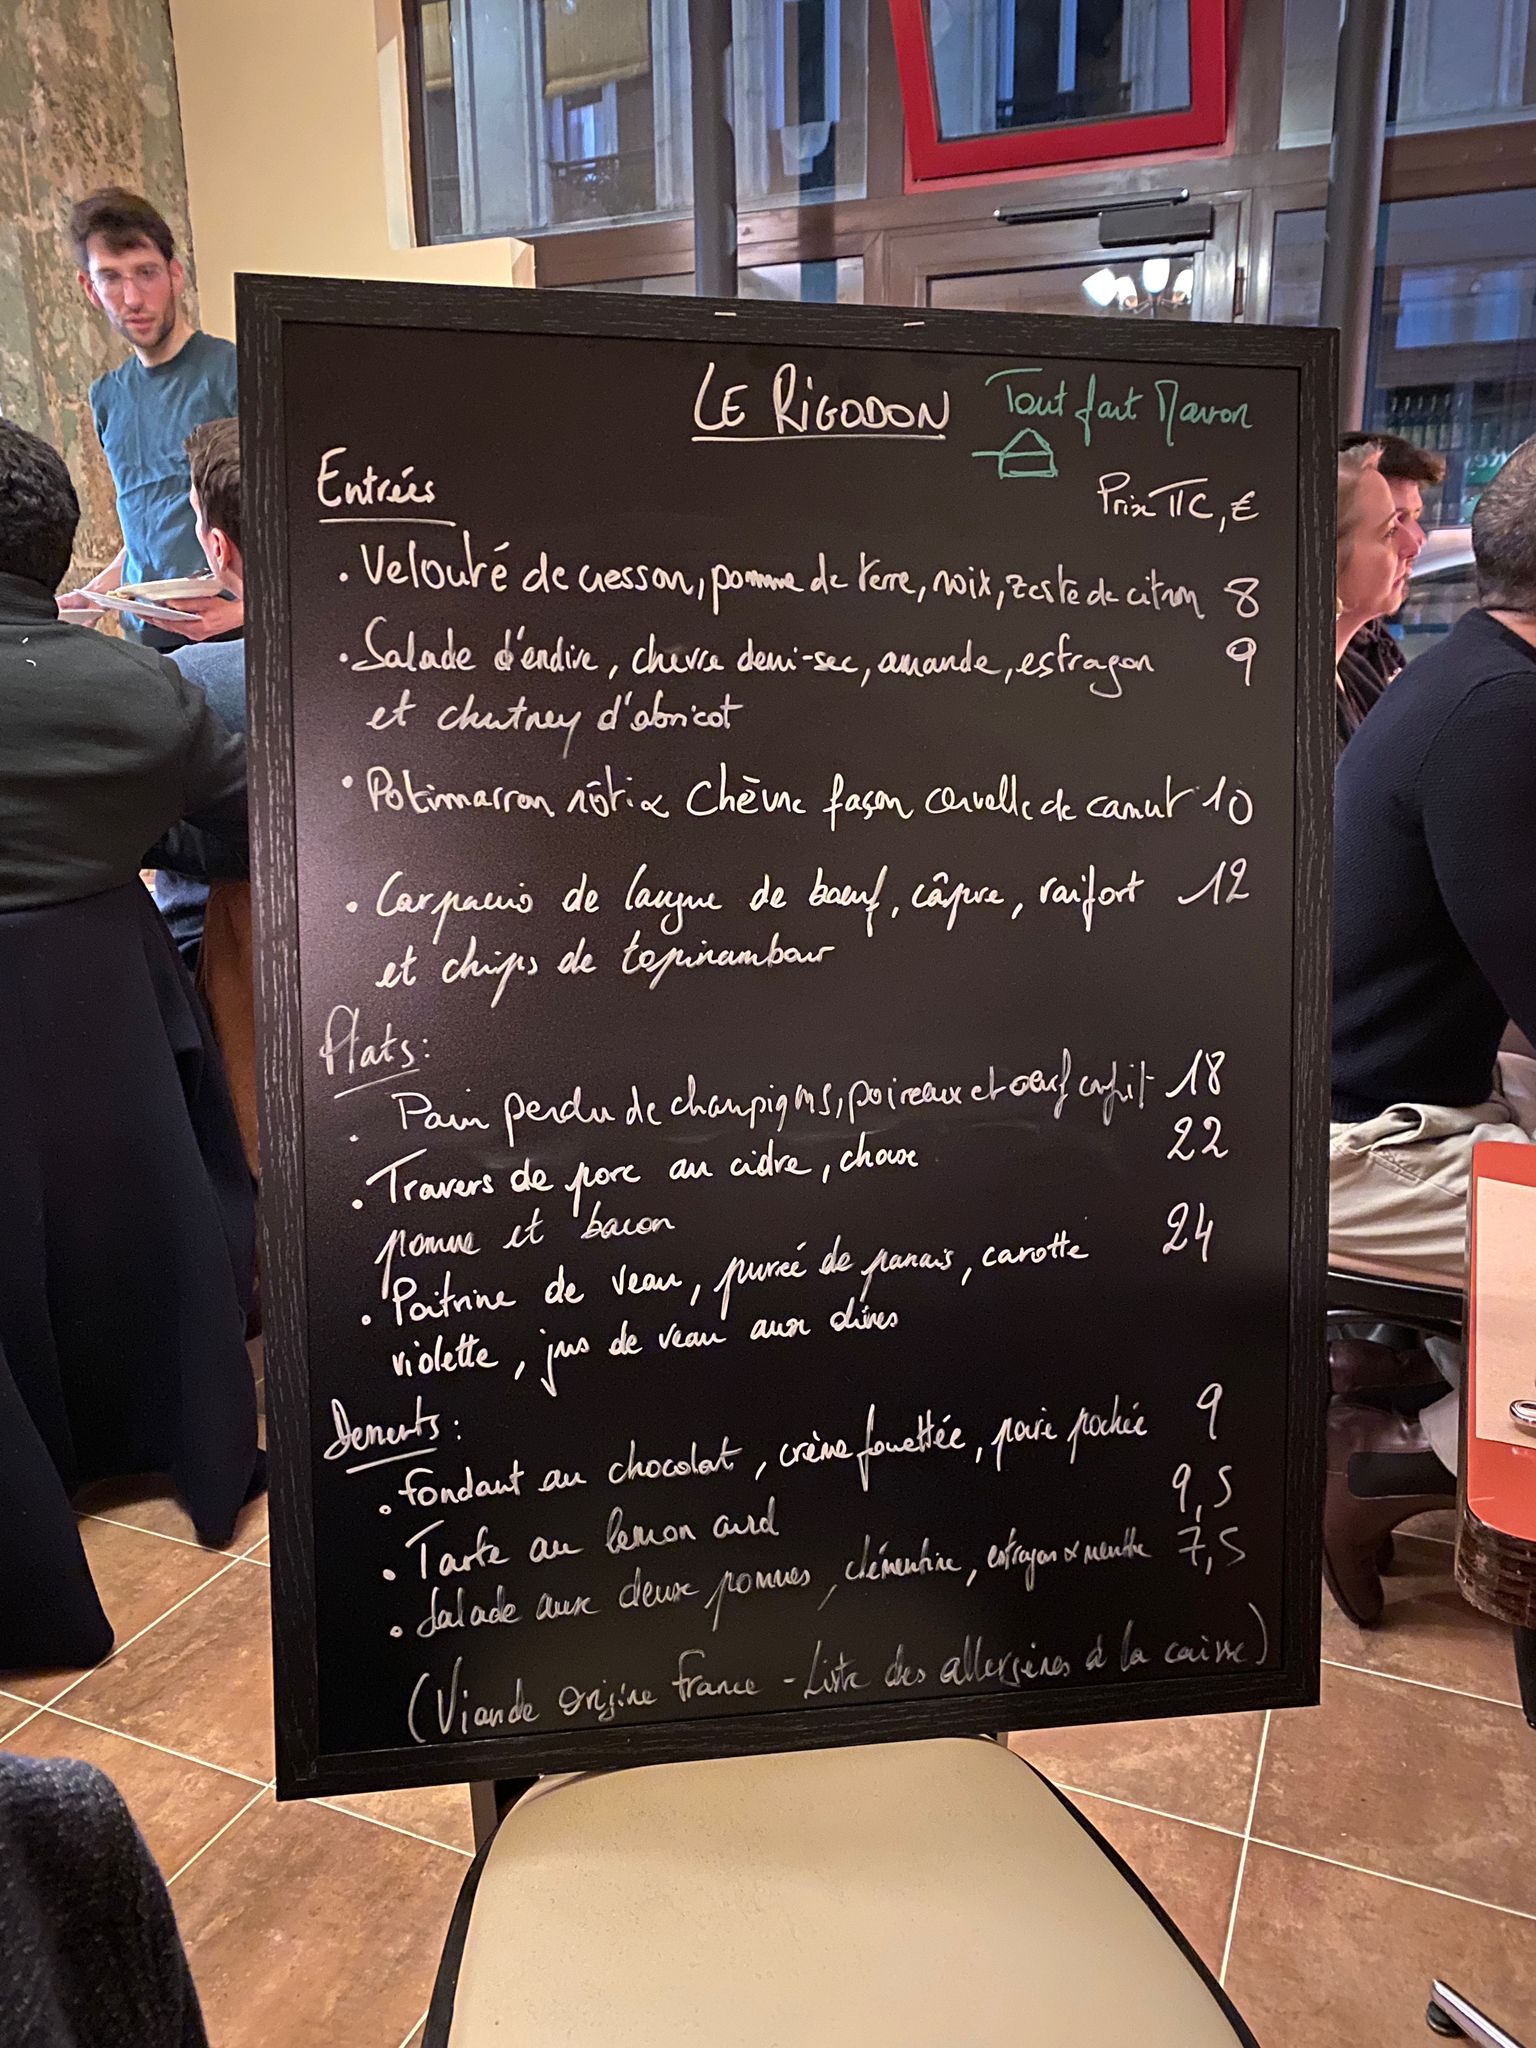 LE RIGODON
Tout fait Maison
Prix TTC, €
Entrées
• Velouté de cresson, pomme de terre, noix, zeste de citron 8
• Salade d'endive, chèvre demi-sec, amande, estragon 9
et chutney d'abricot
• Potimarron rôti & Chèvre façon cervelle de canut 10
• Carpaccio de langue de bœuf, câpre, raifort 12
et chips de topinambour
Plats:
• Pain perdu de champignons, poireaux et oeuf confit 18
• Travers de porc au cidre, choux 22
pomme et bacon
• Poitrine de veau, purée de panais, carotte 24
violette, jus de veau aux olives
Desserts:
• Fondant au chocolat, crème fouettée, poire pochée 9
• Tarte au lemon curd 9,5
• Salade aux deux pommes, clémentine, estragon & menthe 7,5
(Viande origine France - Liste des allergènes à la caisse)